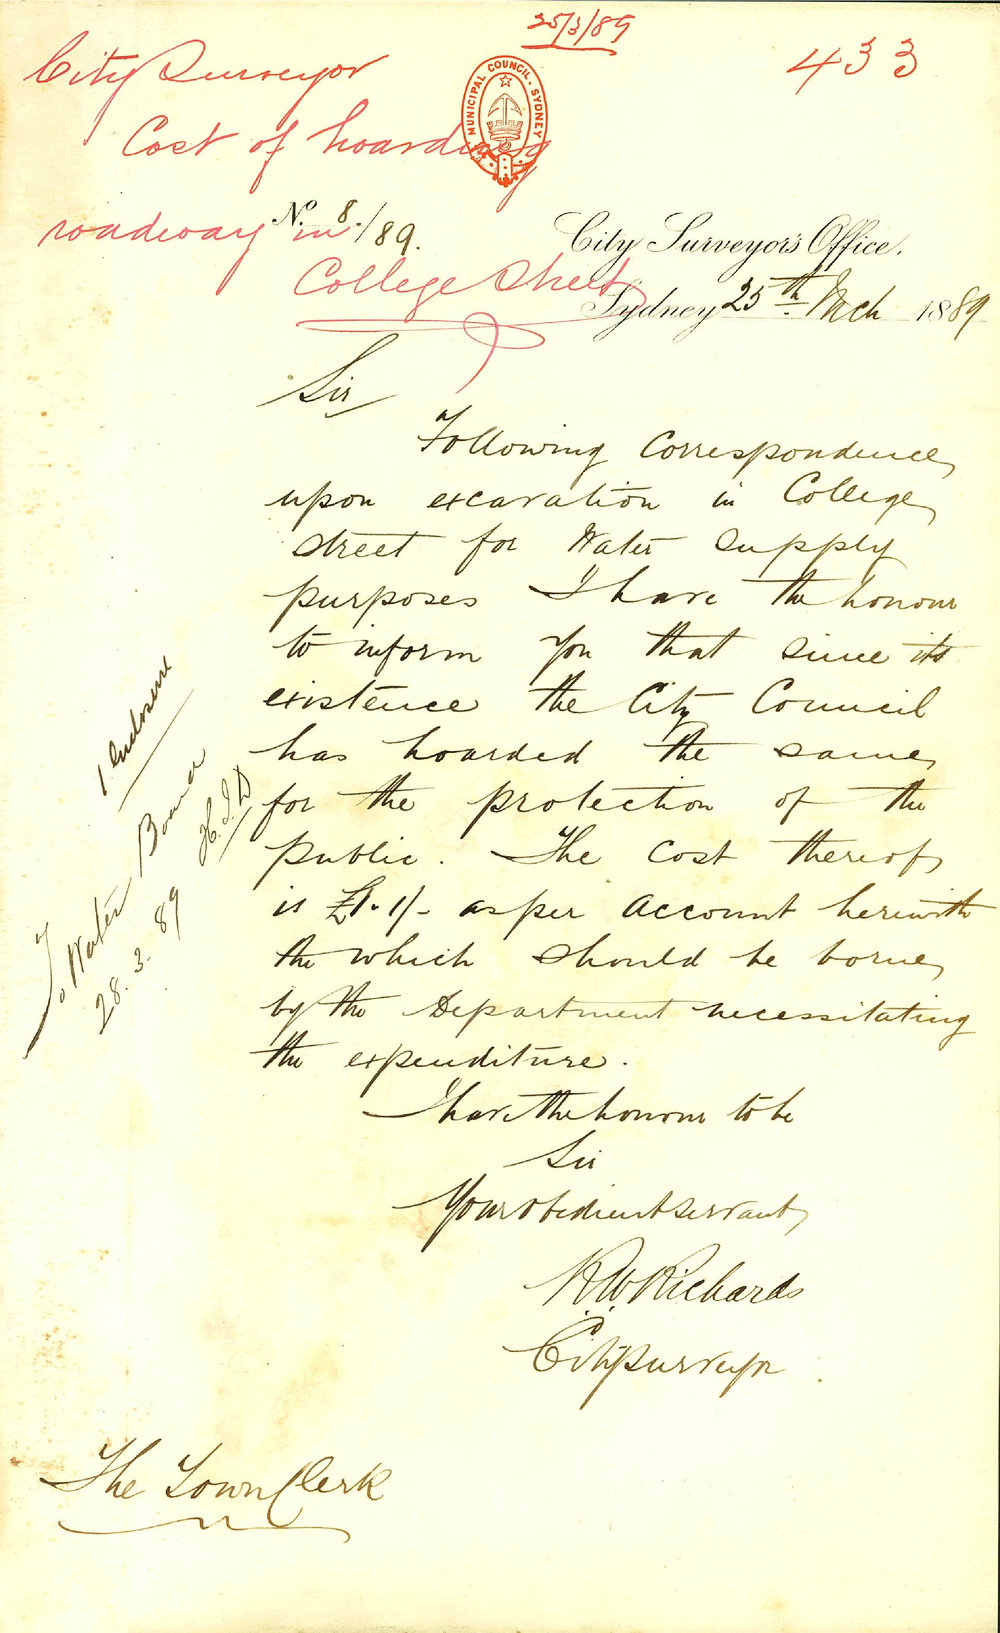 25/3/89
433
City Surveyor
Cost of hoarding
roadway in
College Street
MUNICIPAL COUNCIL. SYDNEY
No. 8./89.
City Surveyor's Office.
Sydney 25th Mch 1889
Sir
Following Correspondence
upon excavation in College
street for Water Supply
purposes I have the honour
to inform you that since its
existence the City Council
has hoarded the same
for the protection of the
public. The cost thereof
is £1.1/- as per account herewith
the which should be borne
by the Department necessitating
the expenditure.
I have the honour to be
Sir
Your obedient servant
R W Richards
City Surveyor
The Town Clerk
1 enclosure
To Water Board
28.3.89